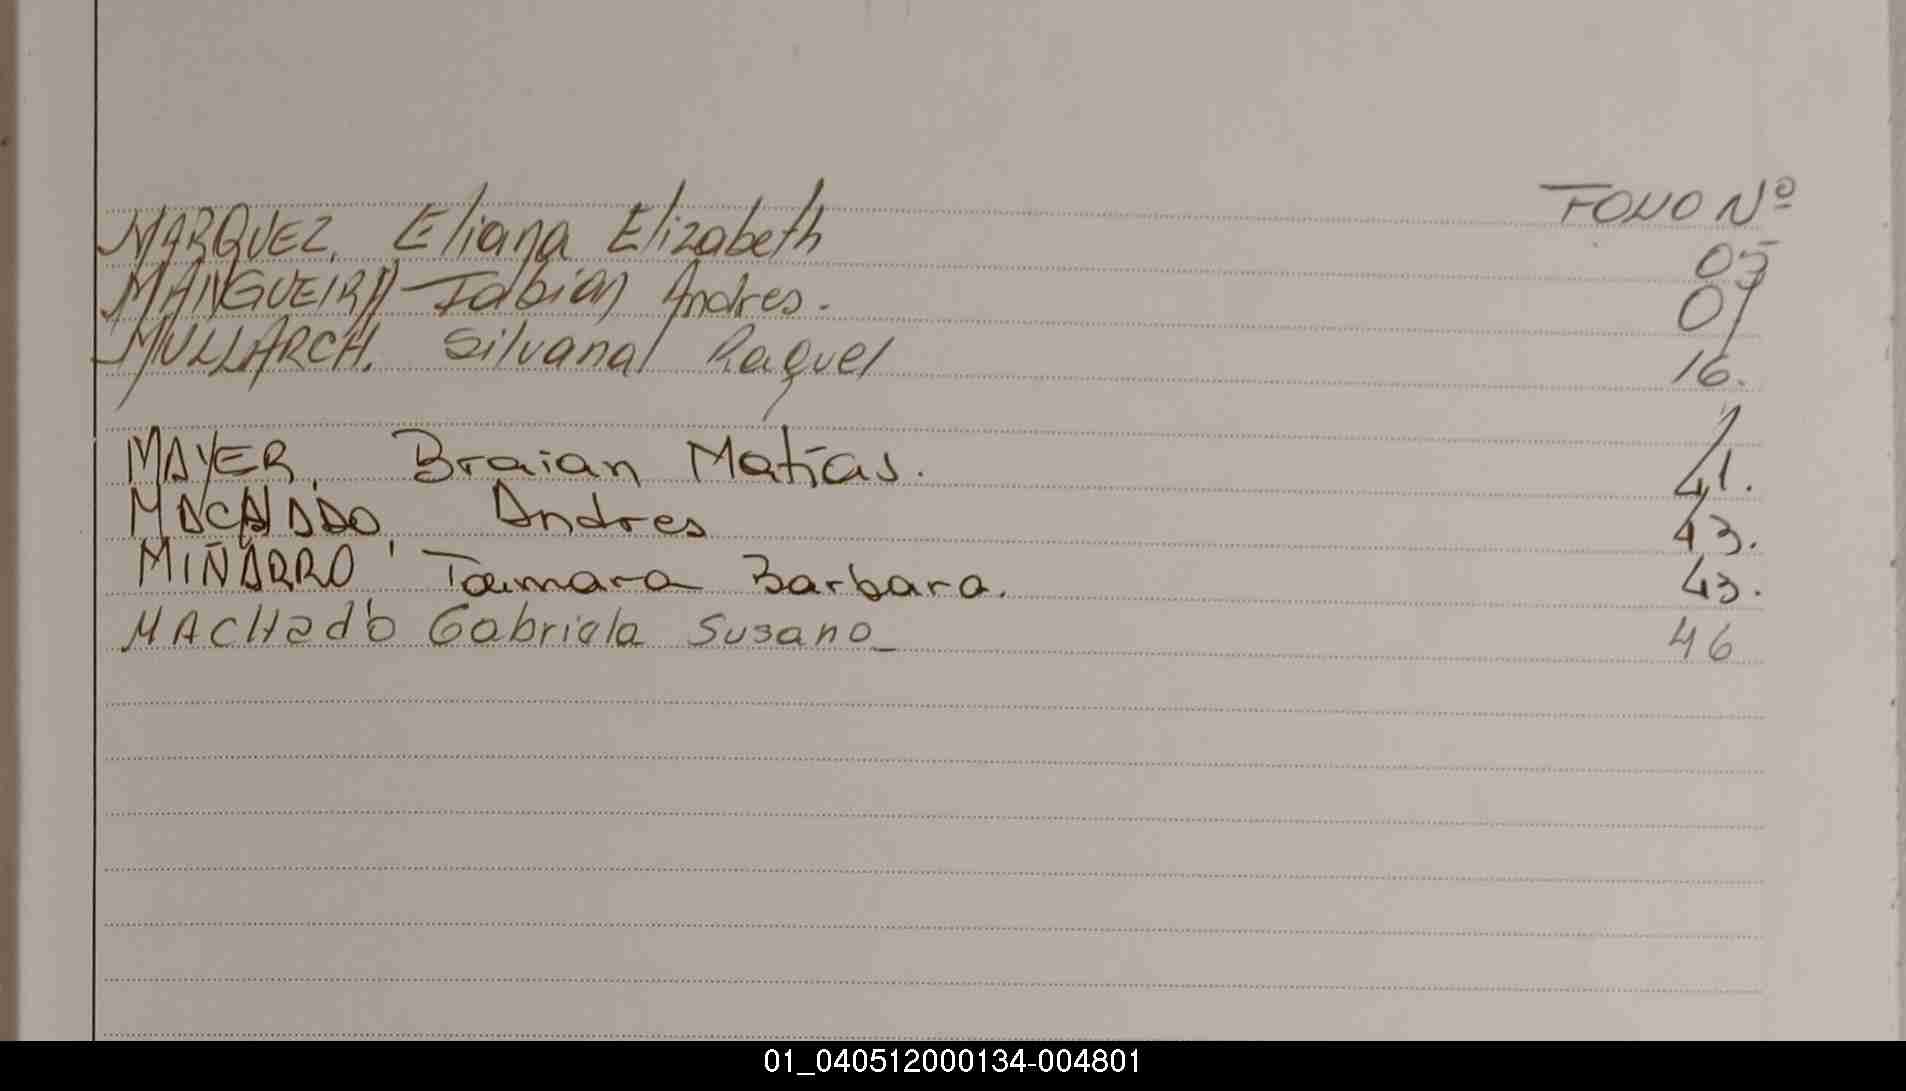 FOLIO Nº
MARQUEZ, Eliana Elizabeth 05
MANGUEIRA Fabián Andres. 07
MULLARCH. Silvana Raquel 16.
MAYER, Braian Matías. 41.
MACHADO Andres 43.
MIÑARRO, Tamara Barbara. 43.
MACHado Gabriela Susana_ 46
01_040512000134-004801